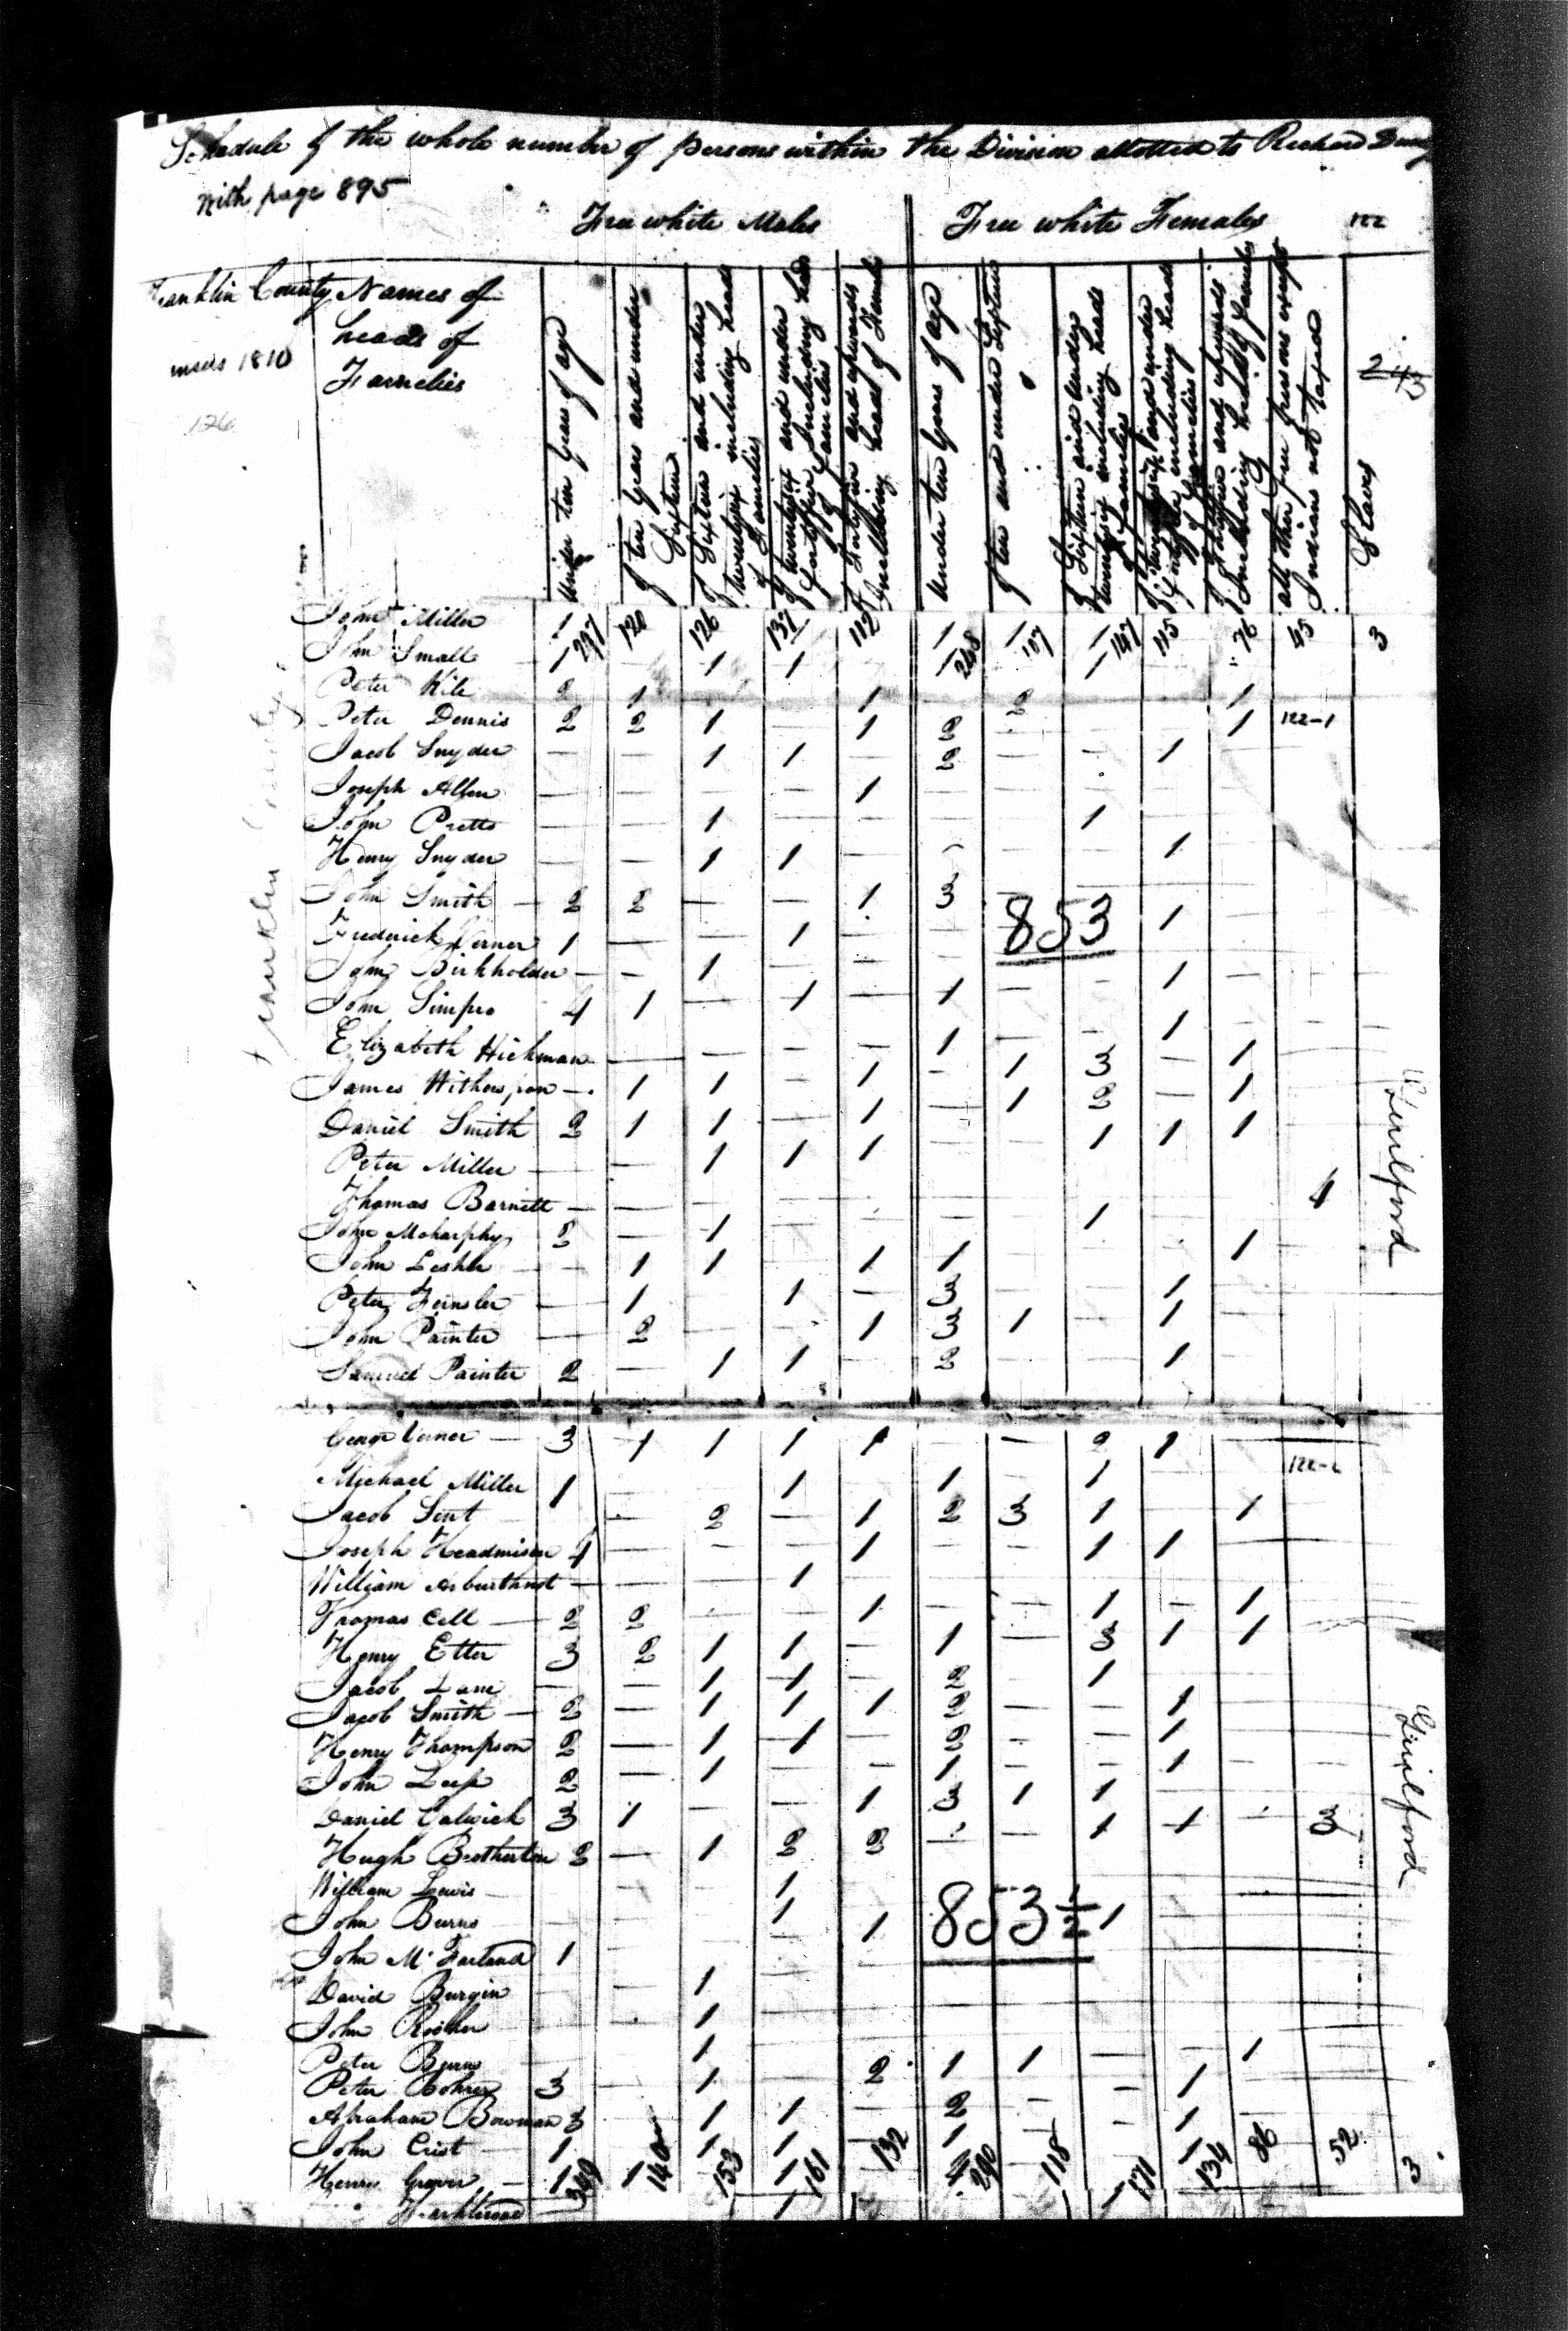 Schedule of the whole number of persons within the Division allotted to Richard
With page 895
Free white Males Free white Females 122
Franklin County Names of heads of Families
Census 1810
126
Under ten Years of age
Of ten Years and under Sixteen
Of Sixteen and under twentysix including heads of Families
Of twentysix and under fortyfive Including heads of Families
Of Fortyfive and upwards Including heads of Families
Under ten Years of age
Of ten and under Sixteen
Of Sixteen and under twentysix including heads of Families
Of twentysix and under fortyfive including heads of Families
Of Fortyfive and upwards Including heads of Families
all other free persons except Indians not taxed
Slaves
Franklin County
John Miller 1
297 120 126 137 112 248 107 147 115 76 45 3
John Small 1 1 1 1 1
Peter Kile 2 1 1 2 1
Peter Dennis 2 2 1 1 2 1 122-1
Jacob Snyder — 1 1 2 — — 1
Joseph Allen — — — — 1
John Pretts — — 1 1
Henry Snyder — — 1 1 — 1
John Smith — 2 2 — — 1 3
853
Frederick Verner 1 — — 1 1
John Birkholder — — 1 1
John Simpro 4 1 — 1 — 1 — — 1
Elizabeth Hickman — — — — 1 1 3 — 1
James Witherspon — 1 1 — 1 — 1 2 — 1
Daniel Smith 2 1 1 1 1 1 1
Peter Miller — — 1 1 1
Thomas Barnett — — 4
John Mcharphy 2 — 1 1
John Leshler — 1 1 1 1 1
Peter Feinsler — 1 1 — 3 1
John Painter — 2 — — 1 3 1 1
Samuel Painter 2 — 1 1 2 1
Guilford
George Verner — 3 1 1 1 1 — 2 1
122-2
Michael Miller 1 1 1 1
Jacob Sent 2 — 1 2 3 1 1
Joseph Headmiser 4 — — — 1 — — 1 1
William Arburthnot — — — 1
Thomas Cell — 2 2 1 — — 1 — 1
Henry Etter 3 2 1 1 — 1 — 3 1 1
Jacob Lane — — 1 1 2 1
Jacob Smith — 2 — 1 1 1 2 — — 1
Henry Thompson 2 — 1 1 2 — — 1
John Leep 2 — 1 — — 1 — — 1
Daniel Galwick 3 1 — — 1 3 1 1
Hugh Brotherton 2 — 1 2 2 — — 1 1 3
William Lewis — 1
John Burns — 1
853½
John McFarland 1 1 1
David Burgin 1
John Rosher 1
Peter Burns 1 2 1 1 — 1
Peter Rohrer 3 — 1 — 1
Abraham Bowman 3 1 1 2 — — 1
John Crist 1 1 1 1 1
Henry Grover — 1 1 1
349 140 153 161 132 290 118 171 134 86 52 3
Guilford